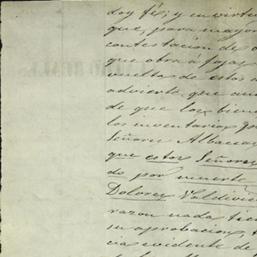 doy fé; y en virtu
que, para mayor
contestacion de
que obra a fojas
vuelta de estos
advierte que
de que los bien
los inventarios
Señores Albaceas
que estos Señores
do por muerte
Dolores Valdivie
razon nada tie
su aprobacion,
va evidente de